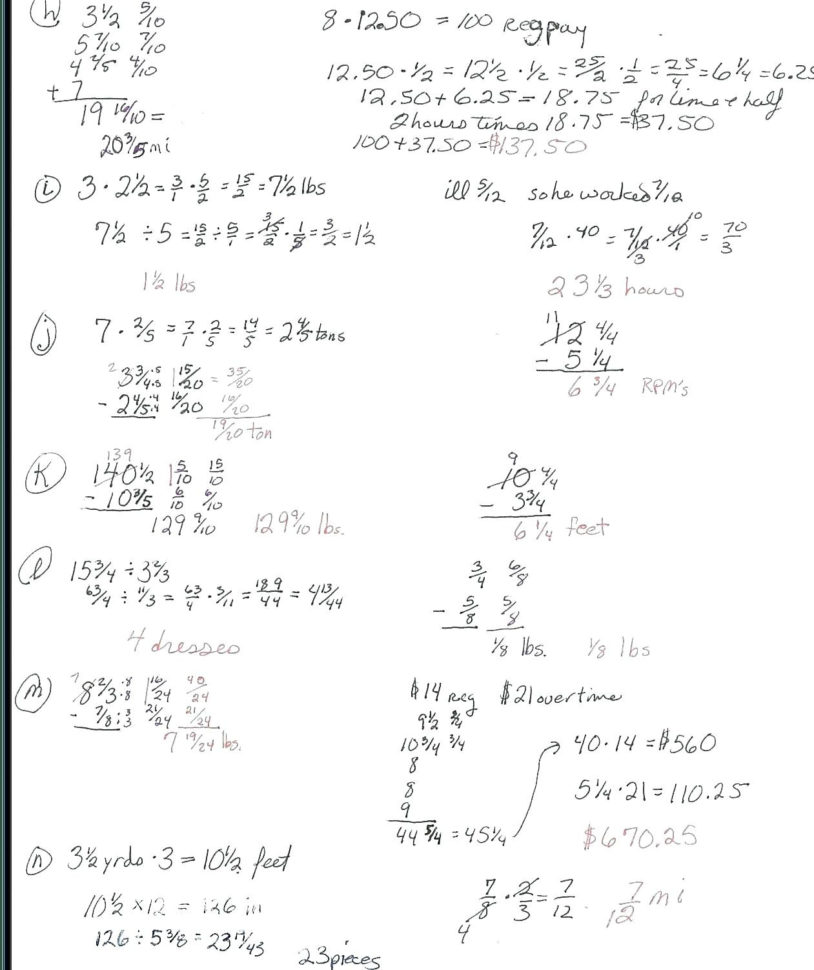 h 3 1/2 5/10
5 7/10 7/10
4 4/5 4/10
+ 7
19 16/10 =
20 3/5 mi
8 · 12.50 = 100 Reg pay
12.50 · 1/2 = 12 1/2 · 1/2 = 25/2 · 1/2 = 25/4 = 6 1/4 = 6.25
12.50 + 6.25 = 18.75 for time & half
2 hours times 18.75 = $37.50
100 + 37.50 = $137.50
i 3 · 2 1/2 = 3/1 · 5/2 = 15/2 = 7 1/2 lbs
7 1/2 ÷ 5 = 15/2 ÷ 5/1 = 3 15/2 · 1/5 = 3/2 = 1 1/2
1 1/2 lbs
ill 5/12 so he worked 7/12
7/12 · 40 = 7/12 3 · 40/1 10 = 70/3
23 1/3 hours
j 7 · 2/5 = 7/1 · 2/5 = 14/5 = 2 4/5 tons
2 3 3/4 ·5 ·5 1 15/20 = 35/20
- 2 4/5 ·4 ·4 16/20 16/20
19/20 ton
11 12 4/4
- 5 1/4
6 3/4 RPM's
K 139
140 1/2 1 5/10 15/10
- 10 3/5 6/10 6/10
129 9/10 129 9/10 lbs.
9
10 4/4
- 3 3/4
6 1/4 feet
l 15 3/4 ÷ 3 2/3
63/4 ÷ 11/3 = 63/4 · 3/11 = 189/44 = 4 13/44
4 dresses
3/4 6/8
- 5/8 5/8
1/8 lbs. 1/8 lbs
m 7 8 2/3 ·8 ·8 1 16/24 40/24
- 7/8 ·3 ·3 21/24 21/24
7 19/24 lbs.
$14 Reg $21 overtime
9 1/2 2/4
10 3/4 3/4
8
8
9
44 5/4 = 45 1/4
40 · 14 = $560
5 1/4 · 21 = 110.25
$670.25
n 3 1/2 yrds · 3 = 10 1/2 feet
10 1/2 × 12 = 126 in
126 ÷ 5 3/8 = 23 19/43
23 pieces
7/8 4 · 2/3 = 7/12 7/12 mi